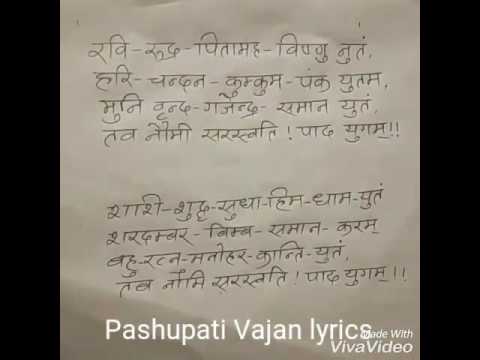 रवि-रूद्र-पितामह-विष्णु नुतं,
हरि-चन्दन-कुम्कुम-पंक युतम,
मुनि वृन्द-गजेन्द्र-समान युतं,
तव नौमी सरस्वति! पाद युगम्!!
शाशी-शुद्ध-सुधा-हिम-धाम-युतं
शरदम्बर-बिम्ब-समान-करम्
बहु-रत्न-मनोहर-कान्ति-युतं,
तव नौमि सरस्वति! पाद युगम्!!
Pashupati Vajan lyrics
Made With
VivaVideo